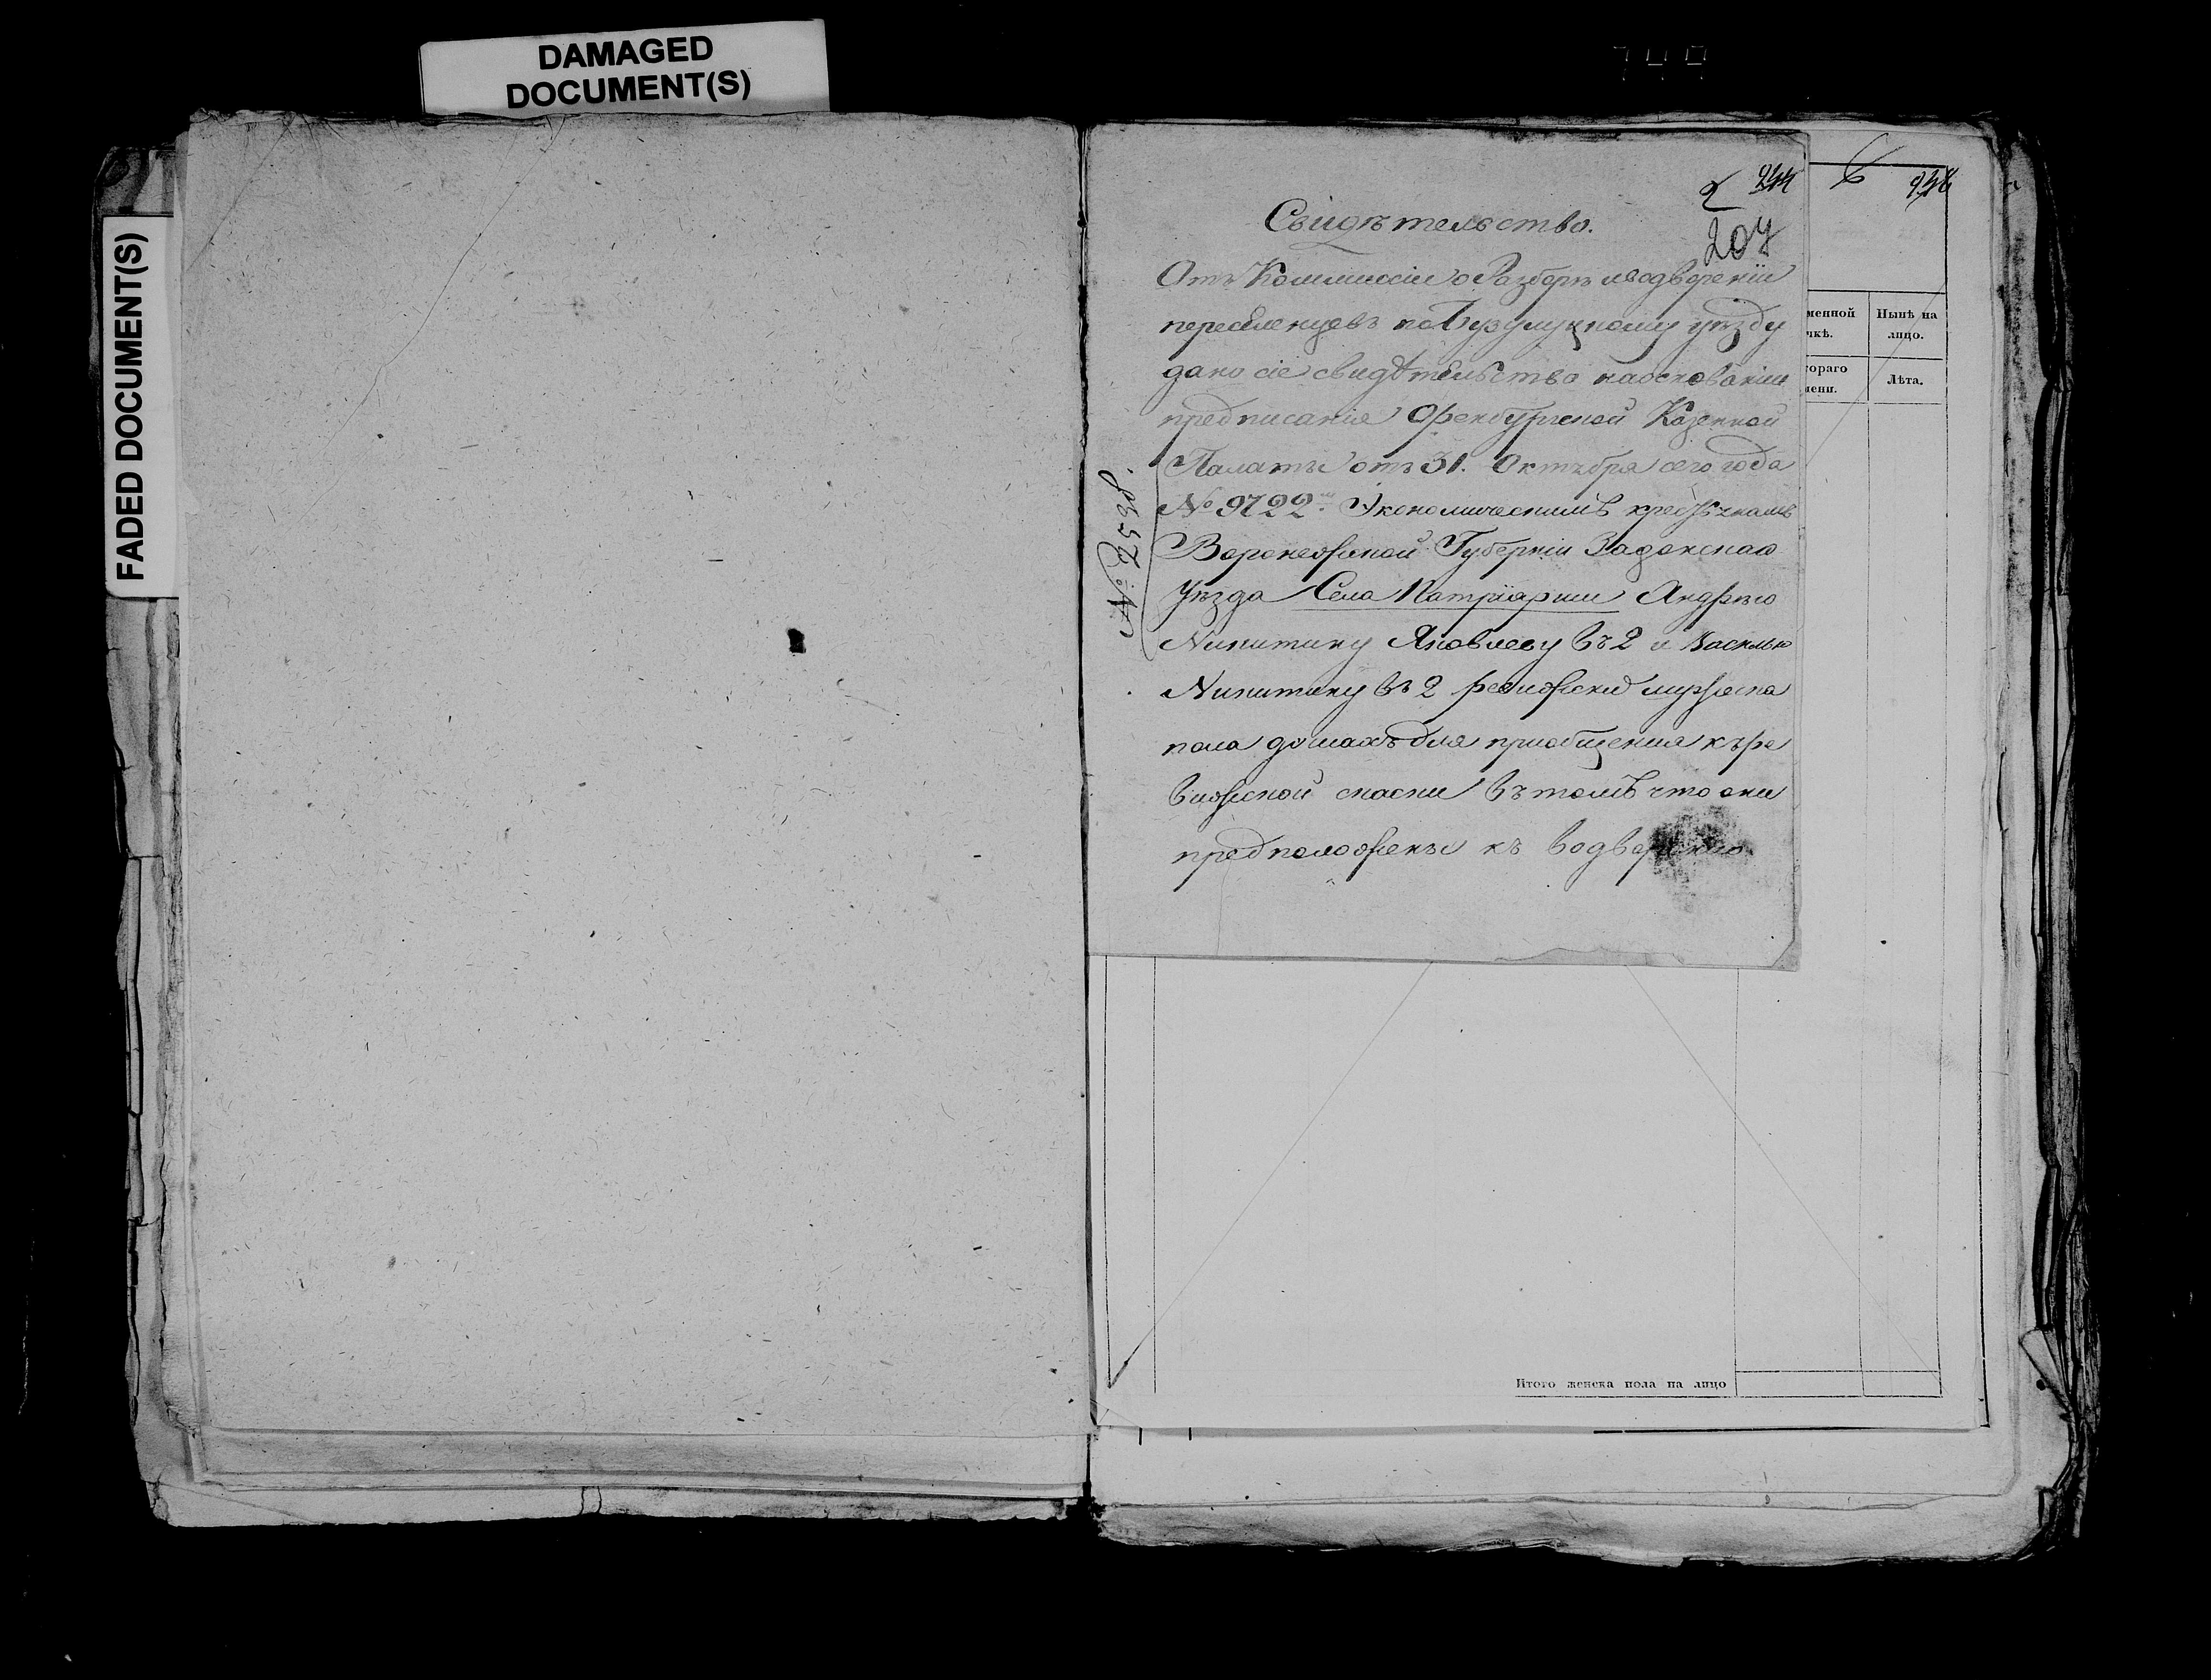 DAMAGED
DOCUMENT(S)
FADED DOCUMENT(S)
749
207
Свидѣтельство.
Отъ Коммиссіи о Разборѣ и водвореніи
переселенцевъ по Бузулуцкому уѣзду
дано сіе свидѣтельство на основаніи
предписанія Оренбургской Казенной
Палаты отъ 31. Октября сего года
№ 9722. Экономическимъ крестьянамъ
Воронежской Губерніи Задонскаго
Уѣзда Села Патріарши Андрѣю
Никитину Яковлеву въ 2 и Василью
Никитину въ 2 ревижских мужеска
пола душахъ для приобщения къ ре
вижской сказки въ томъ что они
предположены къ водворению
менной
чкѣ.
Нынѣ на
лицо.
тораго
мени.
Лѣта.
Итого женска пола на лицо